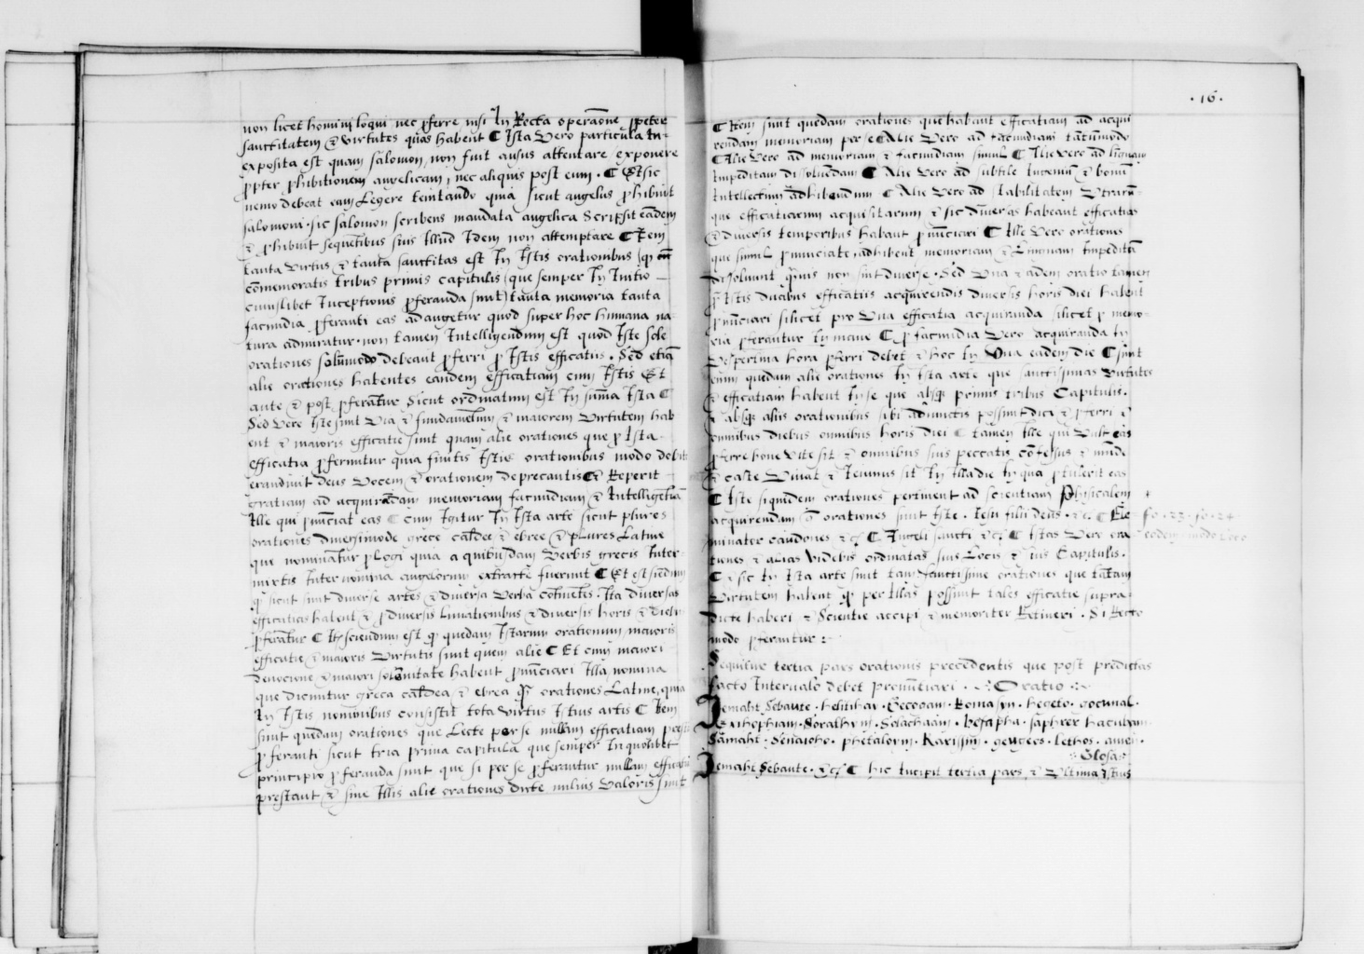 non licet homini loqui nec pferre nisi In Recta operaone ppter
sanctitatem & virtutes quas habent ¶ Ista Vero particula In-
exposita est quam salomon non fuit ausus attentare exponere
ppter phibitionem angelicam, nec aliquis post eum. ¶ Et sic
nemo debeat eam Legere temtando quia sicut angelus phibuit
salomoni. sic salomon scribens mandata angelica Scripsit eadem
& phibuit sequetibus suis Illud Idem non attemptare ¶ Item
tanta virtus & tanta sanctitas est In Istis orationibus (q cu
comemoratis tribus primis capitulis (que semper In Initio
cuiuslibet Inceptionis pferanda sunt) tanta memoria tanta
facundia pferanti eas adaugetur quod super hoc humana na-
tura admiratur. non tamen Intelligendum est quod Iste sole
orationes solumodo debeant pferri p Istis efficatiis. Sed etia
alie orationes habentes eandem efficatiam cum Istis Et
ante & post pferatur sicut ordinatum est In suma Ista ¶
Sed Vere Iste sunt Via & fundametum & maiorem Virtutem hab
ent & maioris efficatie sunt quam alie orationes que p Ista
efficatia pferuntur quia finitis Istis orationibus modo debit
exaudivit Deus Vocem & orationem deprecantis & Reperit
gratiam ad acquiradam memoriam facundiam & Intelligetia
Ille qui punciat eas ¶ cum Igitur In Ista arte sicut plures
orationes diversimode grece caldee & ebree & pLures Latine
que nominatur pLogi quia a quibusdam Verbis grecis Inter
mixtis Inter nomina angelorum extracte fuerunt ¶ Et est sciedum
q sicut sunt diverse artes & diversa Verba cotinetes. Ita diversas
efficatias habent & p diversis Lunationibus & diversis horis & diebus
pferatur ¶ It sciendum est q quedam Istarum orationum maioris
efficatie & maioris Virtutis sunt quam alie ¶ Et cum maiori
devocione & maiori solenitate habent punciari Illa nomina
que dicuntur greca caldea & ebrea q orationes Latine, quia
In Istis nominibus consistit tota virtus Istius artis ¶ Item
sunt quedam orationes que Licte per se nullam efficatiam prestant
pferanti sicut tria prima capitula que semper In quolibet
principio pferanda sunt que si per se pferantur nullam efficatiam
prestant & sine Illis alie orationes dicte nulius Valoris sunt
.16.
¶ Item sunt quedam orationes que habeant efficatiam ad acqui
rendam memoriam per se ¶ Alie Vero ad facundiam tatumodo
¶ Alie Vero ad memoriam & facundiam simul ¶ Alie vero ad linguam
Impeditam dissoluendam ¶ Alie Vero ad subtile Ingeniu & bonu
Intellectum adhibendum ¶ Alie Vero ad stabilitatem Utraru-
que efficatiarum acquisitarum & sic diversas habeant efficatias
& diversis temporibus habant punciari ¶ Ille Vero orationes
que simul punciate adhibent memoriam & Linguam Impedita
dissoluunt quis non sint diverse. Sed Una & eadem oratio tamen
p Istis duabus efficatiis acquirendis diversis horis diei habent
punciari silicet pro Una efficatia acquiranda silicet p memo-
ria pferantur In mane ¶ p facundia Vero acquiranda In
Vespertina hora pferri debet & hoc In Una eadem die ¶ sunt
enim quedam alie orationes In Ista arte que sanctissimas virtutes
& efficatiam habent In se que absq primis tribus Capitulis.
& absq aliis orationibus sibi adiunctis possunt dici & pferri &
omnibus diebus omnibus horis diei ¶ tamen Ille qui Vult eas
pferre bone vite sit & omnibus suis peccatis cofessus & mude
& caste Vivat & Ieiunus sit In Illa die In qua ptulerit eas
¶ Iste siquidem orationes pertinent ad scientiam phisicalem +
acquirendam & orationes sunt Iste. Iesu fili deus. & cf ¶ Ele- fo. 23. fo. 24.
minator candones & cf ¶ Angeli sancti & cf ¶ Istas Vero ora- eodem modo
tiones & alias videbis ordinatas suis Locis & suis Capitulis.
¶ & sic In Ista arte sunt tam sanctissime orationes que tatam
Virtutem habent q per Illas possunt tales efficatie supra-
dicte haberi & Scientie accipi & memoriter Retineri. Si Recto
modo pferantur :~
Sequitur tertia pars orationis precedentis que post predictas
facto Intervalo debet pronunciari. :~ Oratio :~
Iemaht Sebaute. helitihay. Gecoran. Romasyn. hegeto. gocumal.
Iexihepham. Soralhyn. Selachaam. hesapha. saphrex hacubam.
Samaht. Senaioho. phetaloym. Karissim. geuges. Lethos. amen.
:~ Glosa :~
Iemaht Sebaute. & cf ¶ hic Incipit tertia pars & Ultima Istius